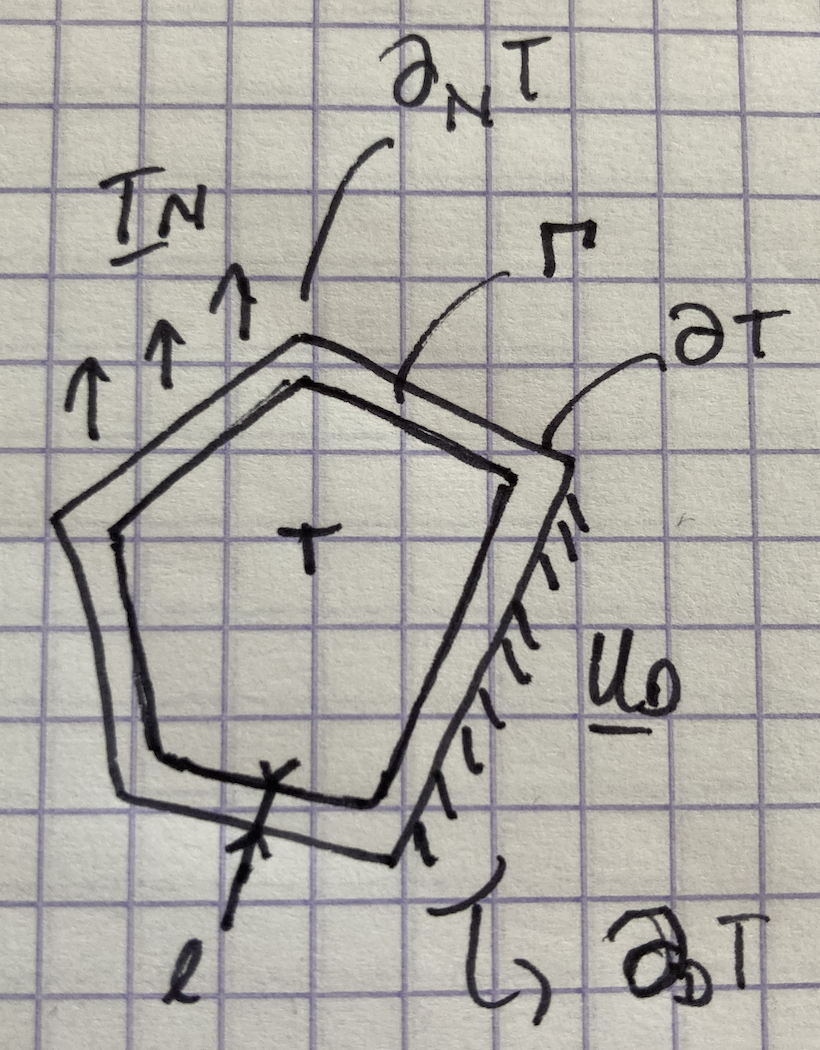 ∂_N T
T_N
Γ
∂T
T
u_D
l
∂_D T